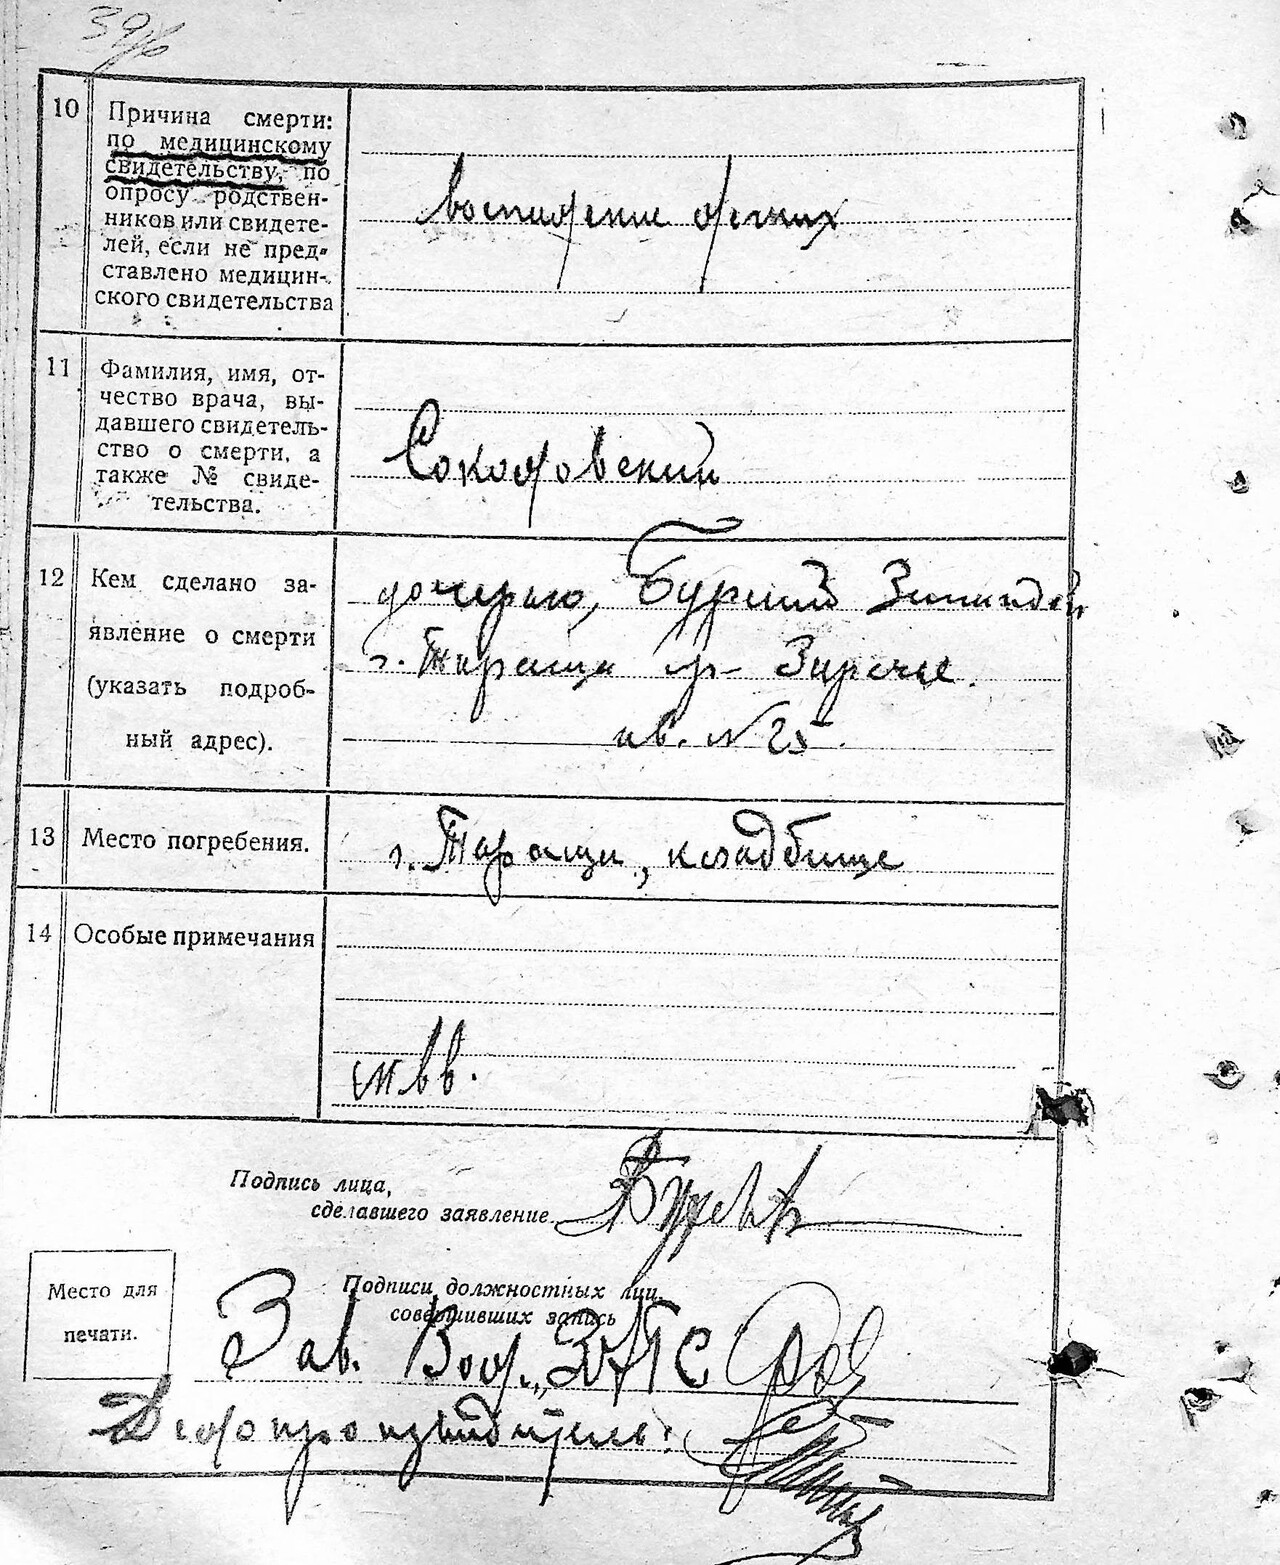 39
10
Причина смерти:
по медицинскому
свидетельству, по
опросу родствен-
ников или свидете-
лей, если не пред-
ставлено медицин-
ского свидетельства
воспаление легких
11
Фамилия, имя, от-
чество врача, вы-
давшего свидетель-
ство о смерти, а
также № свиде-
тельства.
Соколовский
12
Кем сделано за-
явление о смерти
(указать подроб-
ный адрес).
дочерью,
г. Тараща Заречье.
кв. № 25.
13
Место погребения.
г. Тараща, кладбище
14
Особые примечания
Подпись лица,
сделавшего заявление
Место для
печати.
Подписи должностных лиц,
совершивших запись
Зав. ЗАГС
Делопроизводитель: